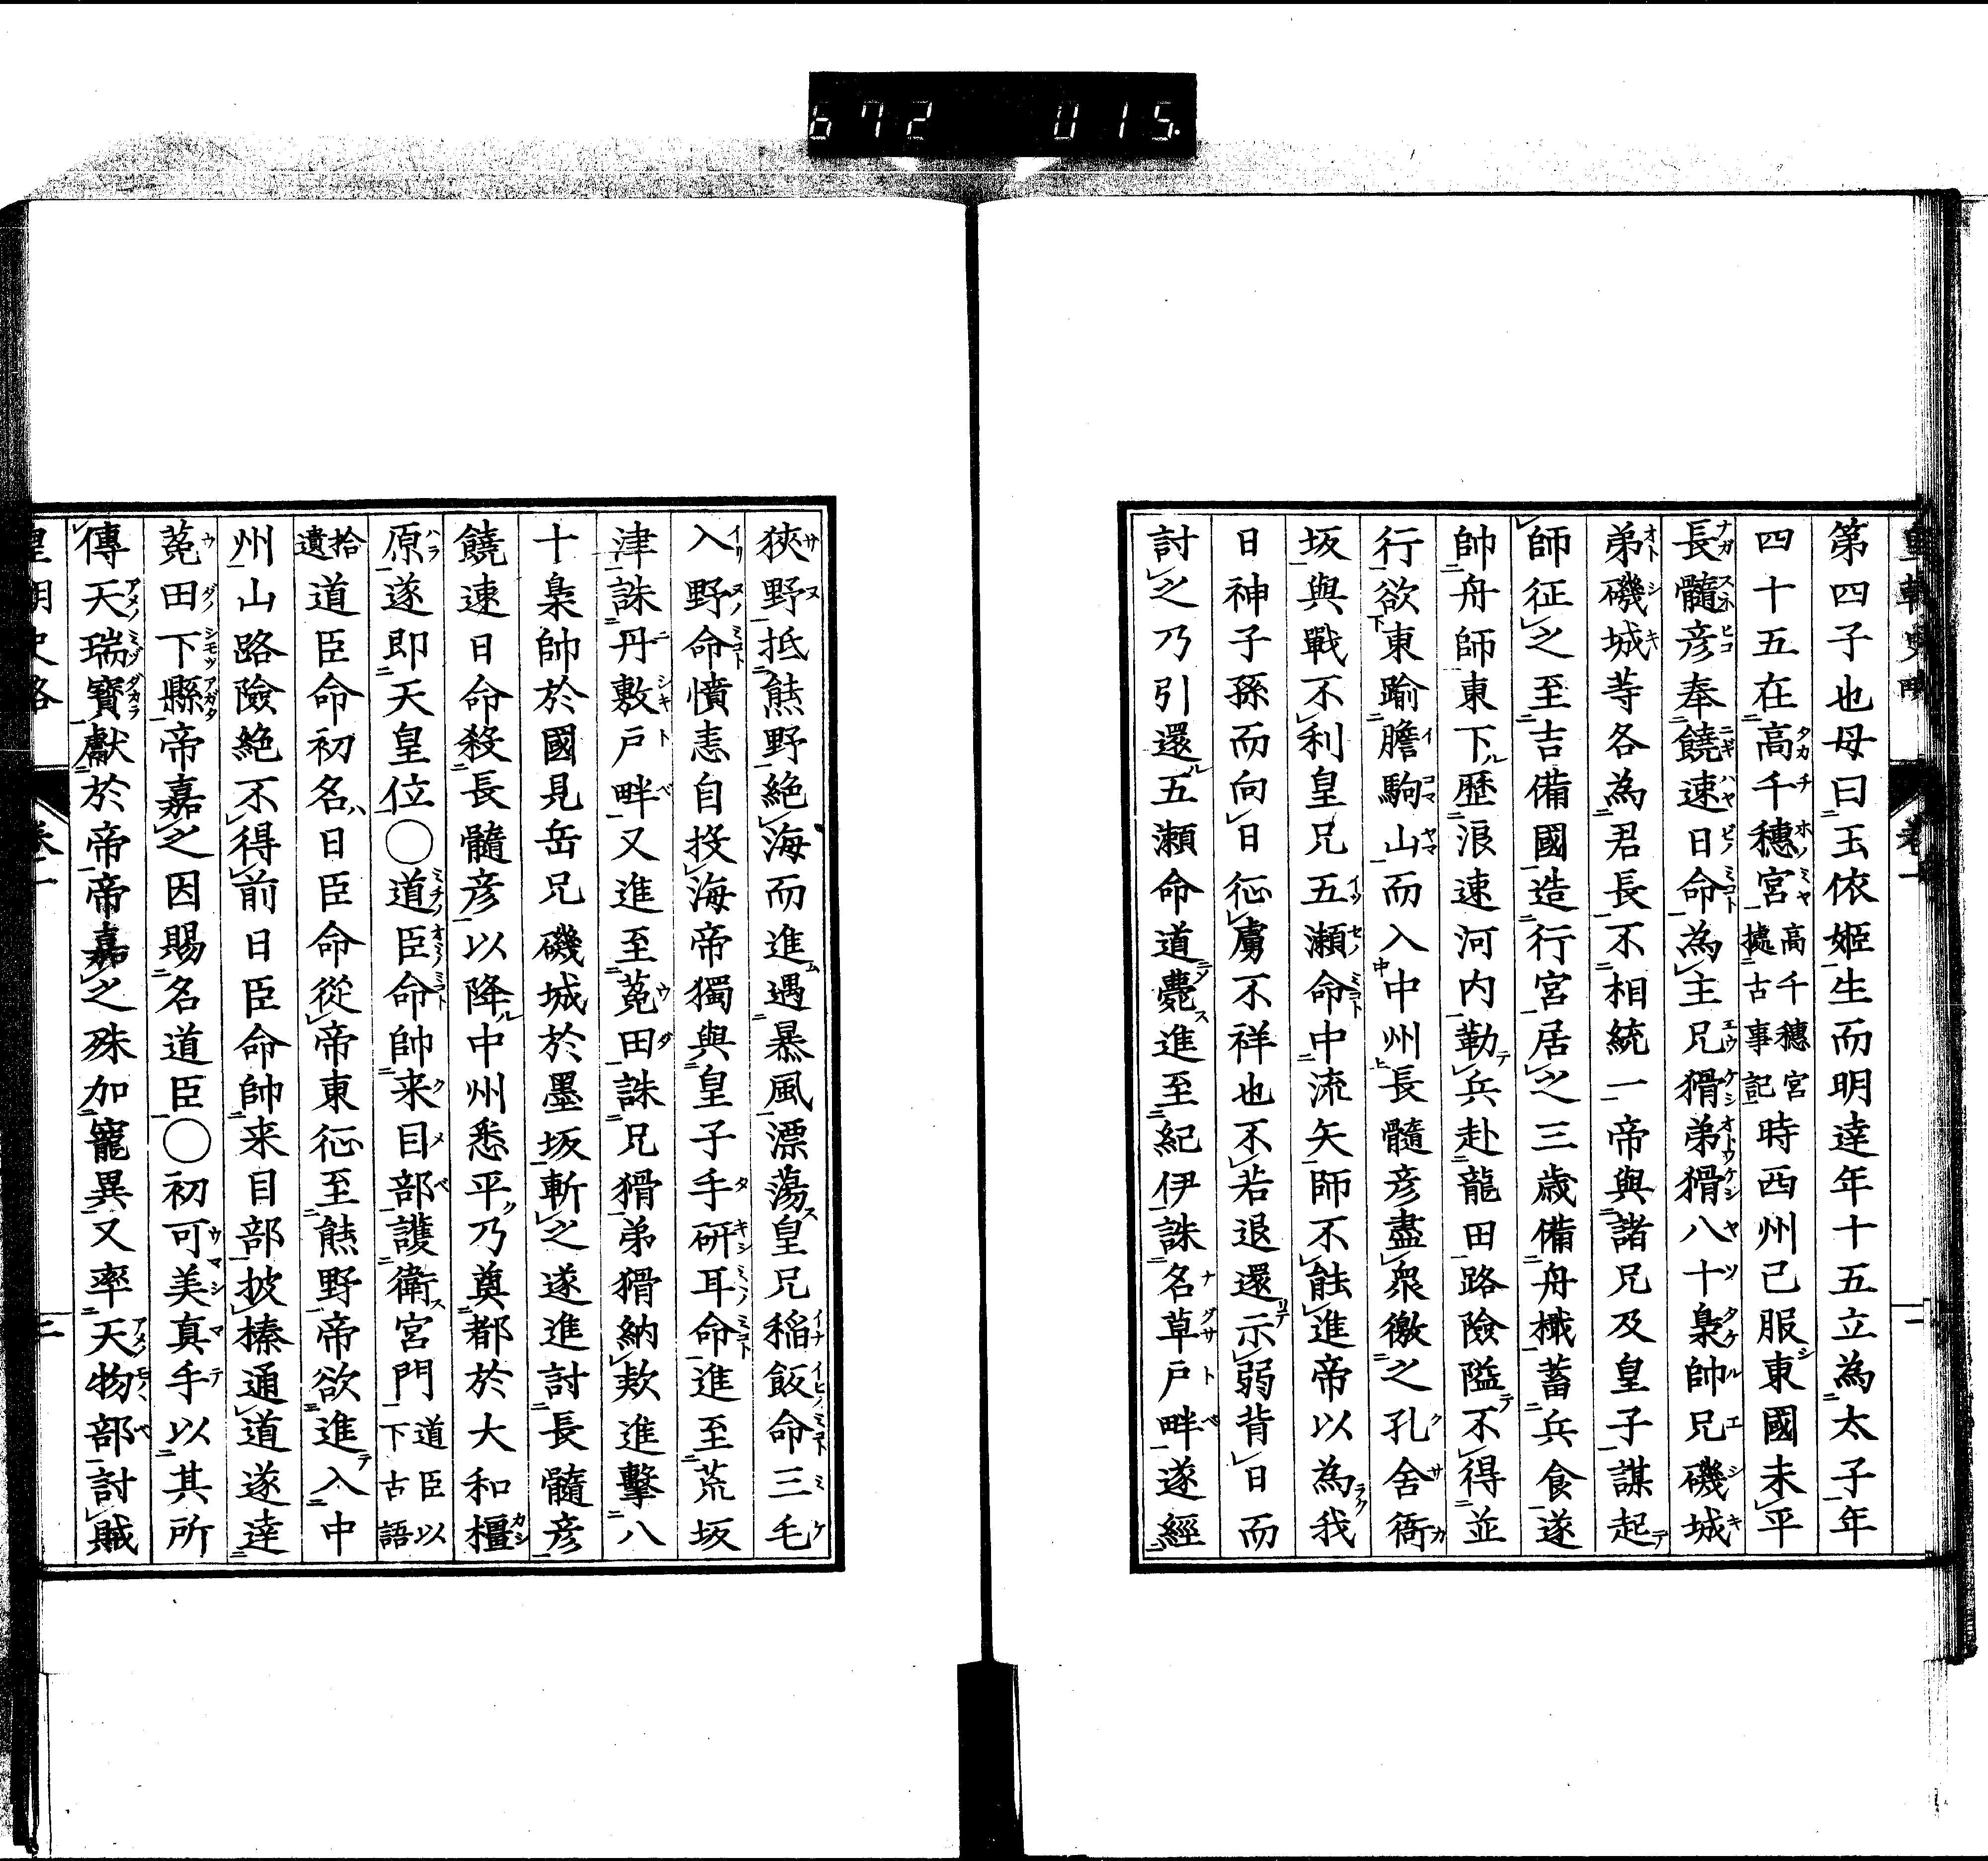 672 015.
第四子也母曰玉依姬生而明達年十五立為太子年
四十五在高千穗宮高千穗宮據古事記時西州已服東國未平
長髓彥奉饒速日命為主兄猾弟猾八十梟帥兄磯城
弟磯城等各為君長不相統一帝與諸兄及皇子謀起
師征之至吉備國造行宮居之三歲備舟檝蓄兵食遂
帥舟師東下歷浪速河內勒兵赴龍田路險隘不得並
行欲東踰膽駒山而入中州長髓彥盡衆徼之孔舍衙
坂與戰不利皇兄五瀨命中流矢師不能進帝以為我
日神子孫而向日征虜不祥也不若退還示弱背日而
討之乃引還五瀨命道薨進至紀伊誅名草戶畔遂經
狹野抵熊野絕海而進遇暴風漂蕩皇兄稻飯命三毛
入野命憤恚自投海帝獨與皇子手研耳命進至荒坂
津誅丹敷戶畔又進至菟田誅兄猾弟猾納欵進擊八
十梟帥於國見岳兄磯城於墨坂斬之遂進討長髓彥
饒速日命殺長髓彥以降中州悉平乃奠都於大和橿
原遂即天皇位○道臣命帥来目部護衛宮門道臣以下古語
拾遺道臣命初名日臣命從帝東征至熊野帝欲進入中
州山路險絕不得前日臣命帥来目部披榛通道遂達
菟田下縣帝嘉之因賜名道臣○初可美真手以其所
傳天瑞寶獻於帝帝嘉之殊加寵異又率天物部討賊